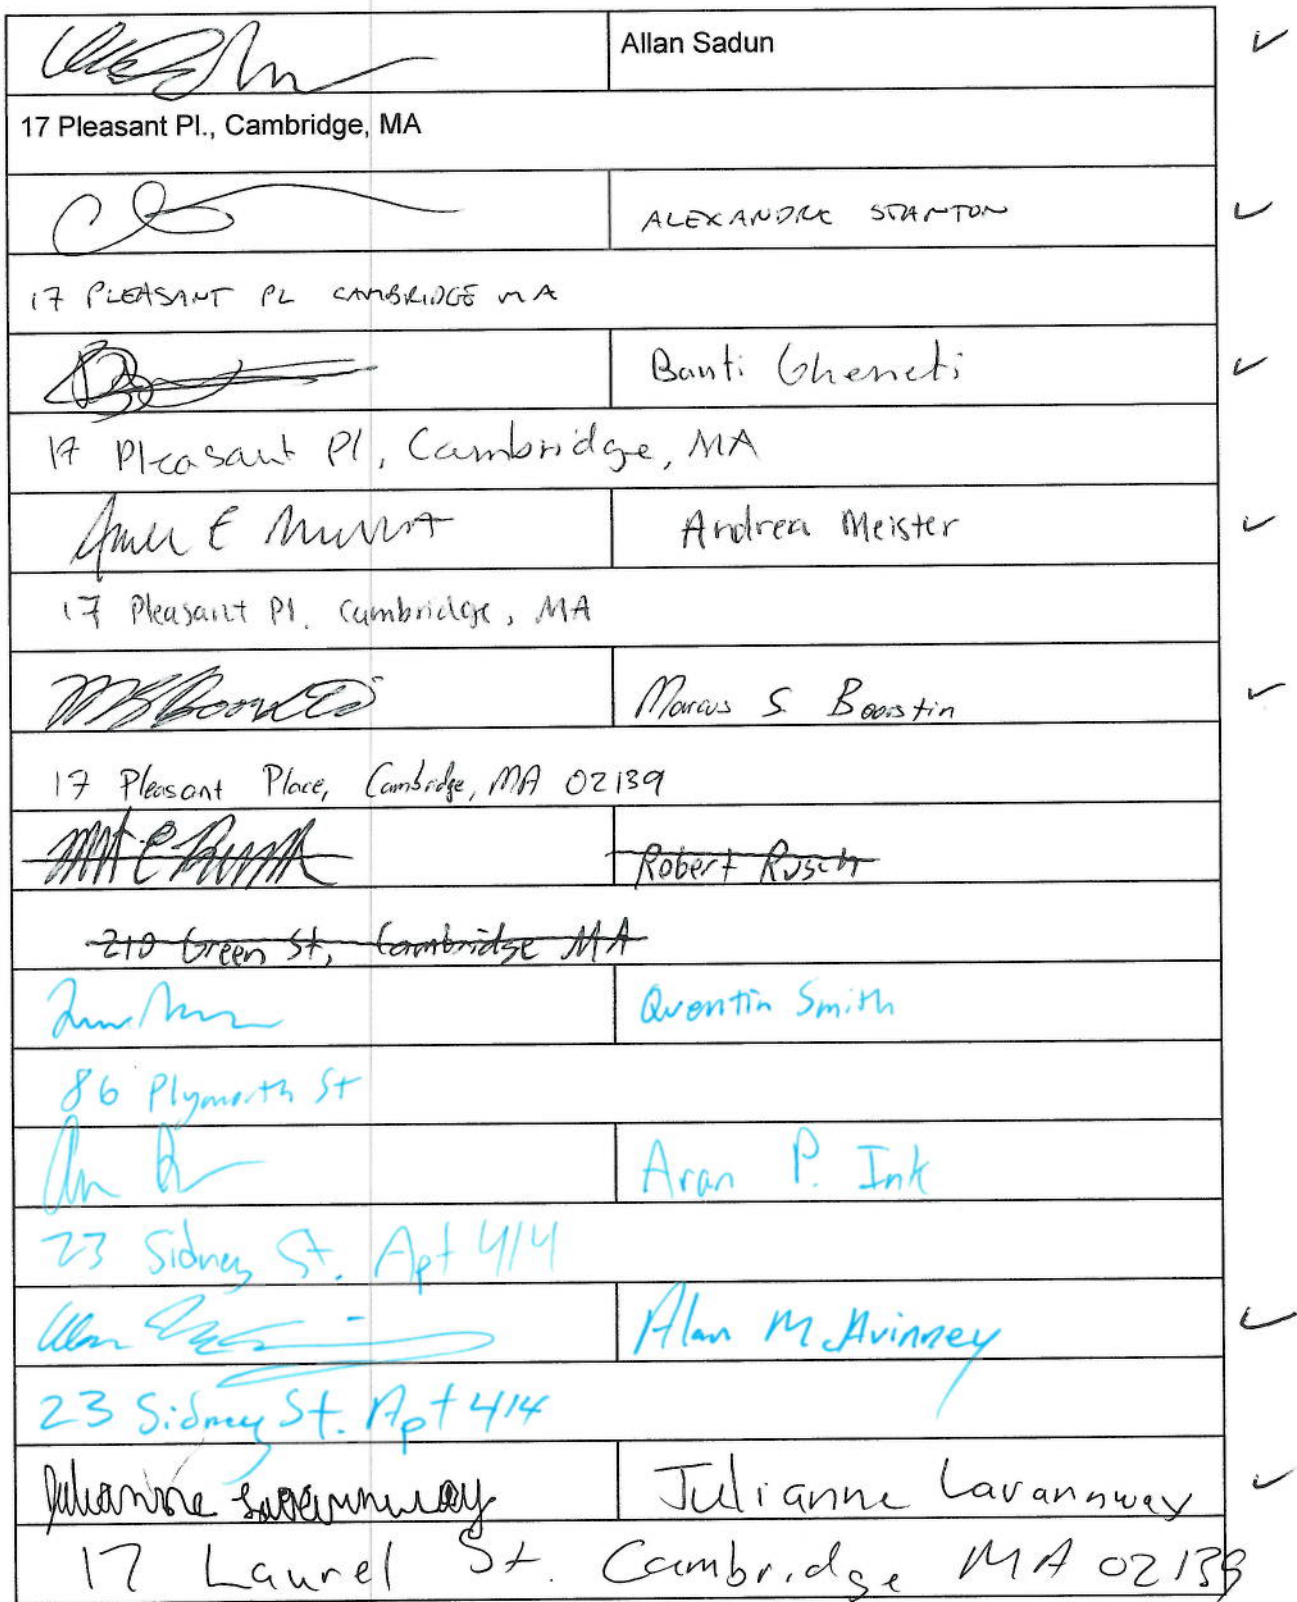 Allan Sadun
17 Pleasant Pl., Cambridge, MA
ALEXANDRE STANTON
17 PLEASANT PL CAMBRIDGE MA
Banti Gheneti
17 Pleasant Pl, Cambridge, MA
Andrea Meister
17 Pleasant Pl. Cambridge, MA
Marcus S. Boorstin
17 Pleasant Place, Cambridge, MA 02139
Robert Rusch
210 Green St, Cambridge MA
Quentin Smith
86 Plymouth St
Aran P. Ink
23 Sidney St. Apt 414
Alan McAvinney
23 Sidney St. Apt 414
Julianne Lavannway Julianne Lavannway
17 Laurel St. Cambridge MA 02139